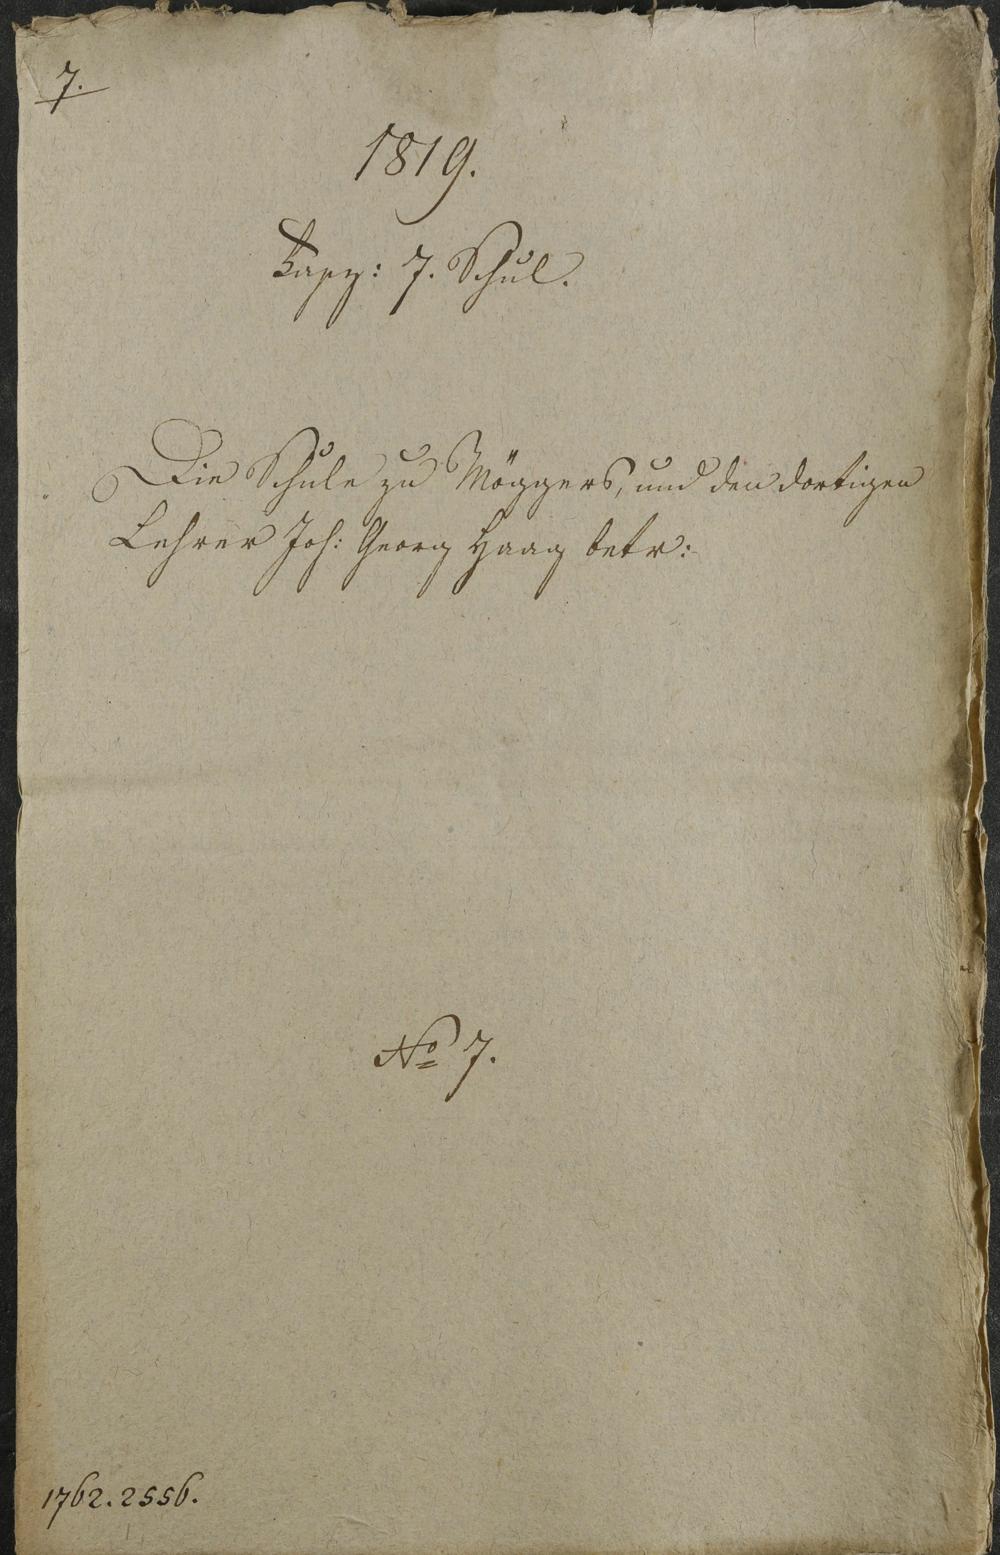 7.
1819.
Fasz: 7. Schul.
Die Schule zu Möggers, und den dortigen
Lehrer Joh: Georg Haag betr:
No 7.
1762. 2556.